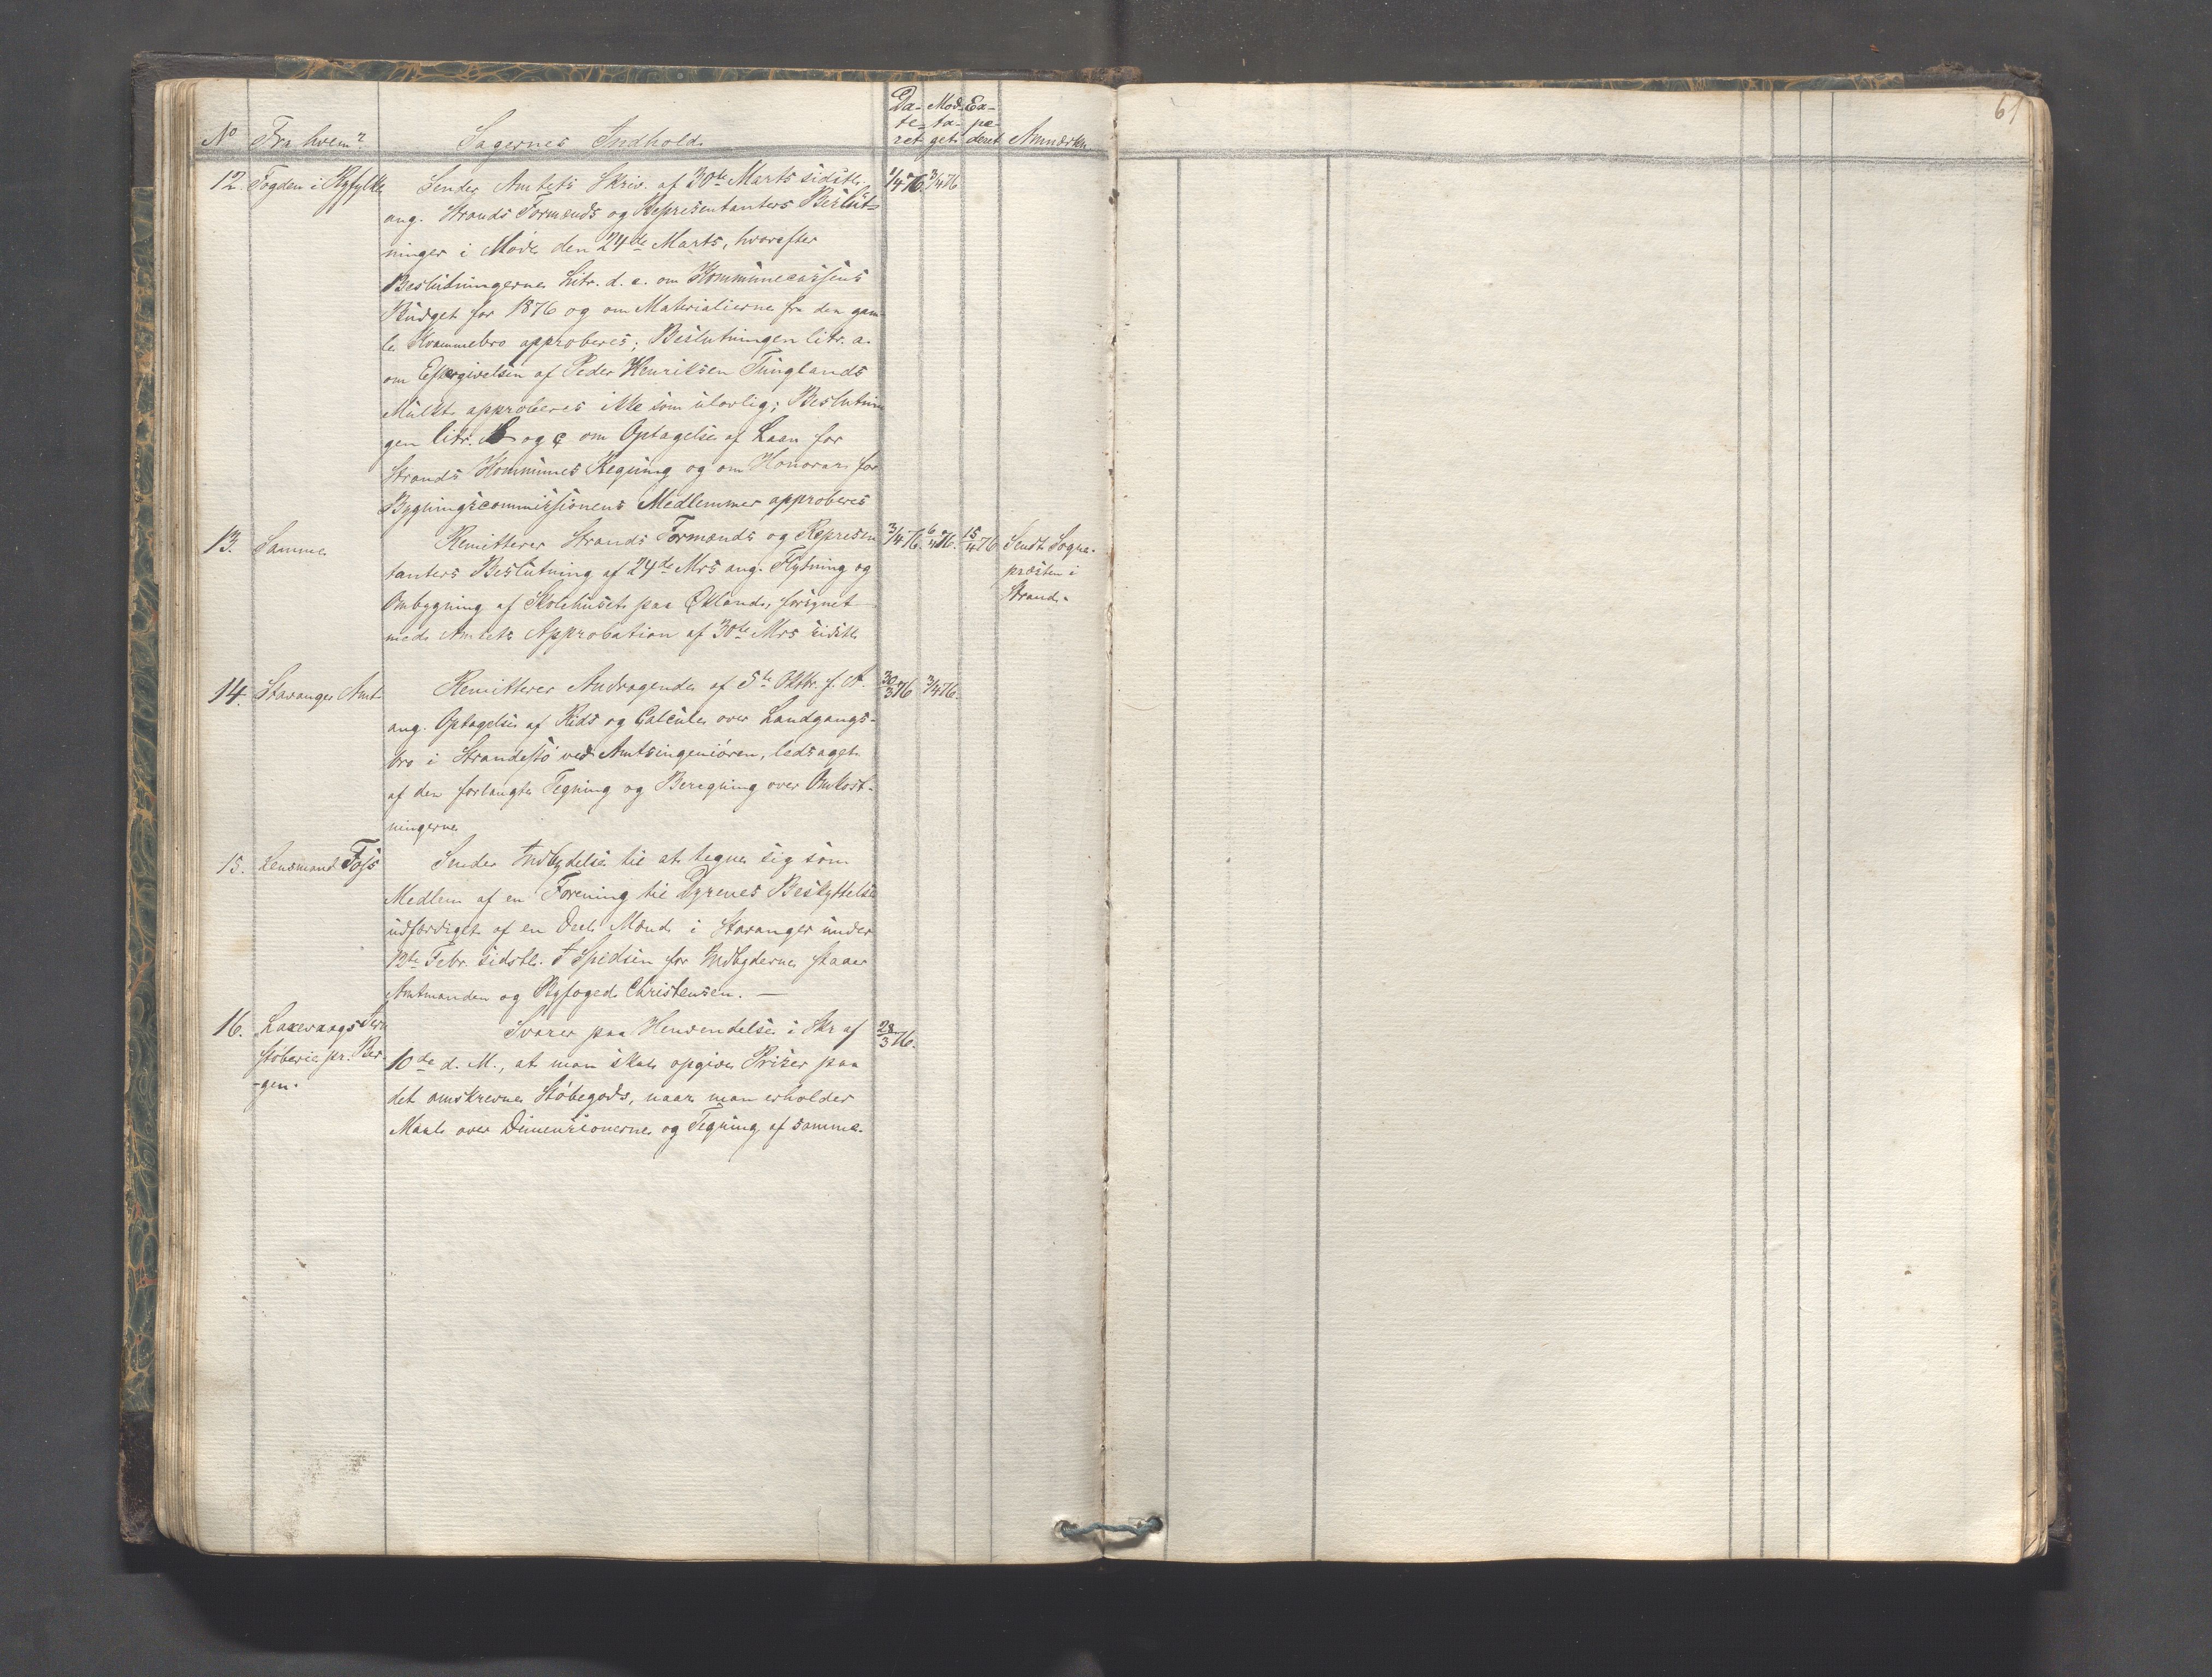 61
No Fra hvem? Sagernes Indhold Da- Mod- Ex-
te- ta- pe-
ret get deret Anmærkn.
12. Fogden i Ryfylke Sender Amtets Skriv. af 30te Marts sidstl. 1/4 76. 3/4 76
ang. Strands Formænds og Repræsentanters Beslut-
ninger i Møde den 24de Marts, hvorefter
Beslutningerne Litr. d. e. om Kommunecassens
Budget for 1876 og om Materialierne fra den gam-
le Kvammebro approberes; Beslutningen litr. a.
om Eftergivelsen af Peder Henriksen Tunglands
Mulkt approberes ikke som ulovlig; Beslutnin
gen litr. B og c om Optagelse af Laan for
Strands Kommunes Regning og om Honorar for
Bygningscommissionens Medlemmer approberes
13. Samme Remitterer Strands Formænds og Represen 3/4 76. 6/4 76. 15/4 76 Sendt Sogne-
tanters Beslutning af 24de Mrs ang. Flytning og præsten i
Ombygning af Skolehuset paa Økland, forsynet Strand.
med Amtets Approbation af 30te Mrs sidstl.
14. Stavanger Amt Remitterer Andragende af 5te Oktbr. f. A. 30/3 76 3/4 76.
ang. Optagelse af Rids og Calcule over Landgangs-
bro i Strandestø ved Amtsingeniøren, ledsaget
af den forlangte Tegning og Beregning over Omkost-
ningerne
15. Lensmand Foss Sender Indbydelse til at tegne sig som
Medlem af en Forening til Dyrenes Beskyttelse
udfærdiget af en Deel Mænd i Stavanger under
12te Febr. sidstl. I Spidsen for Indbyderne staaer
Amtmanden og Byfoged Christensen. —
16. Laxevaags Jern Svarer paa Henvendelse i Skr af 28/3 76.
støberie pr. Ber- 10de d. M., at man skal opgive Priser paa
-gen. det omskrevne Støbegods, naar man erholder
Maal over Dimensionerne og Tegning af samme.